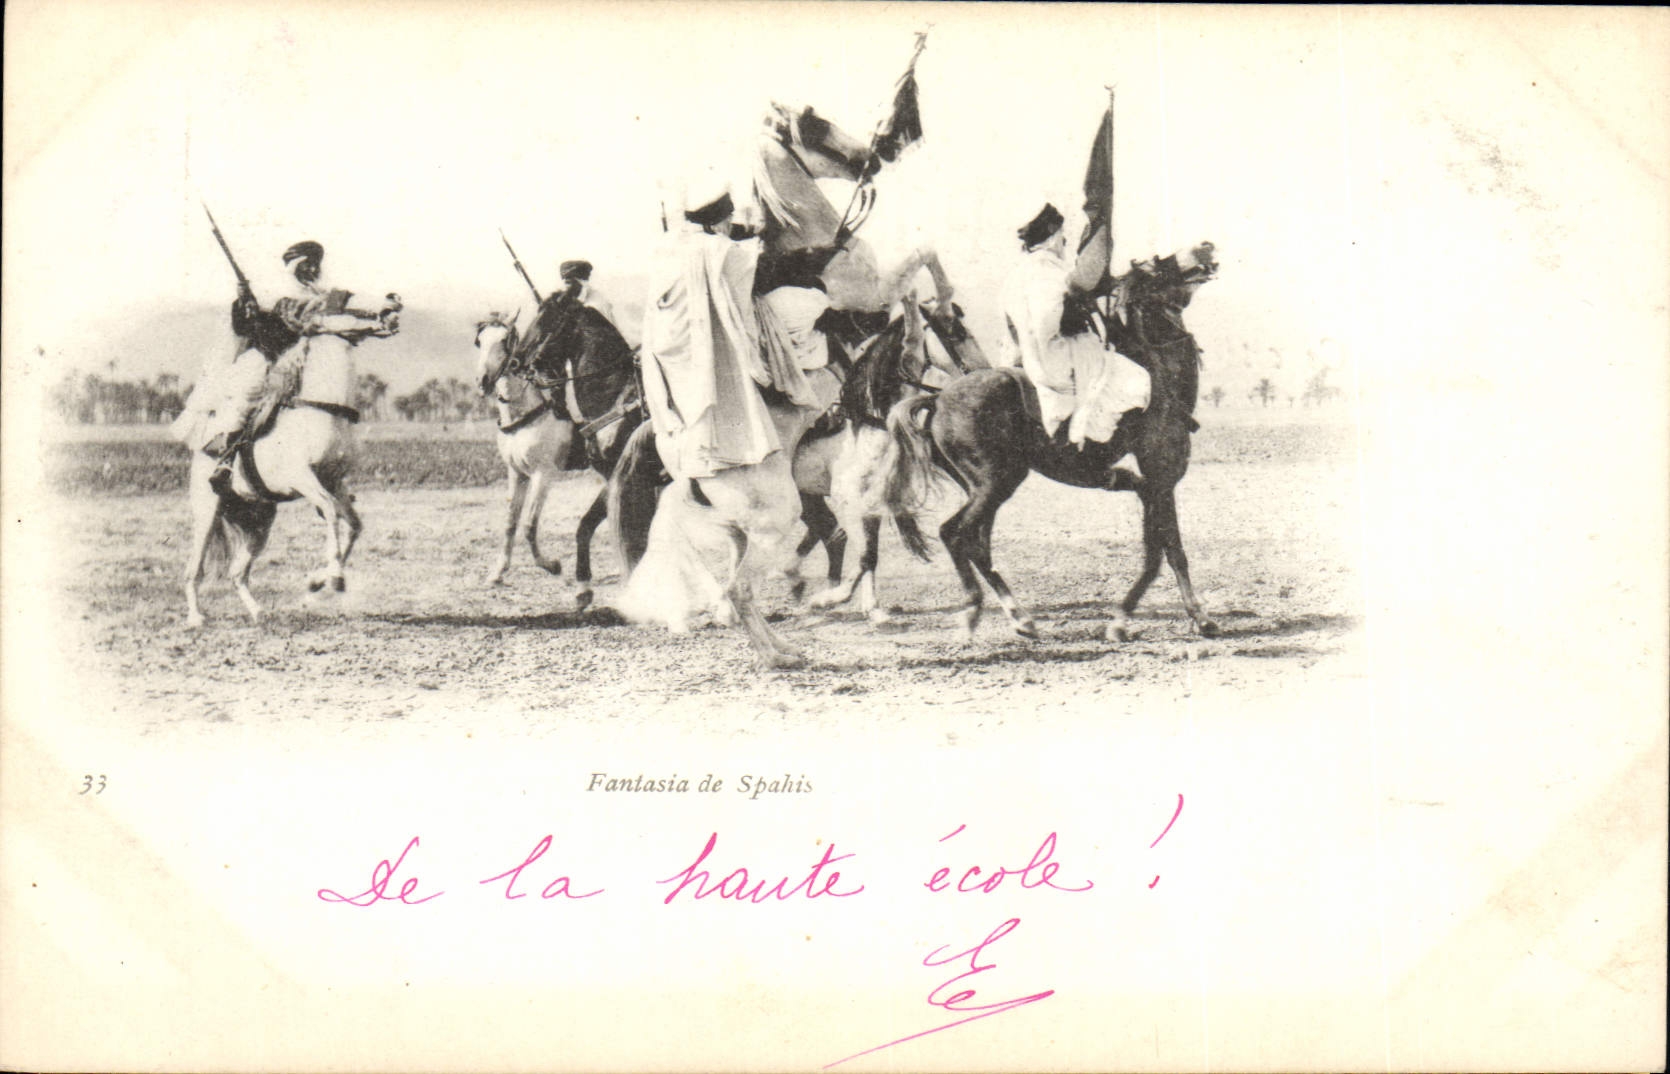 33
Fantasia de Spahis
De la haute école !